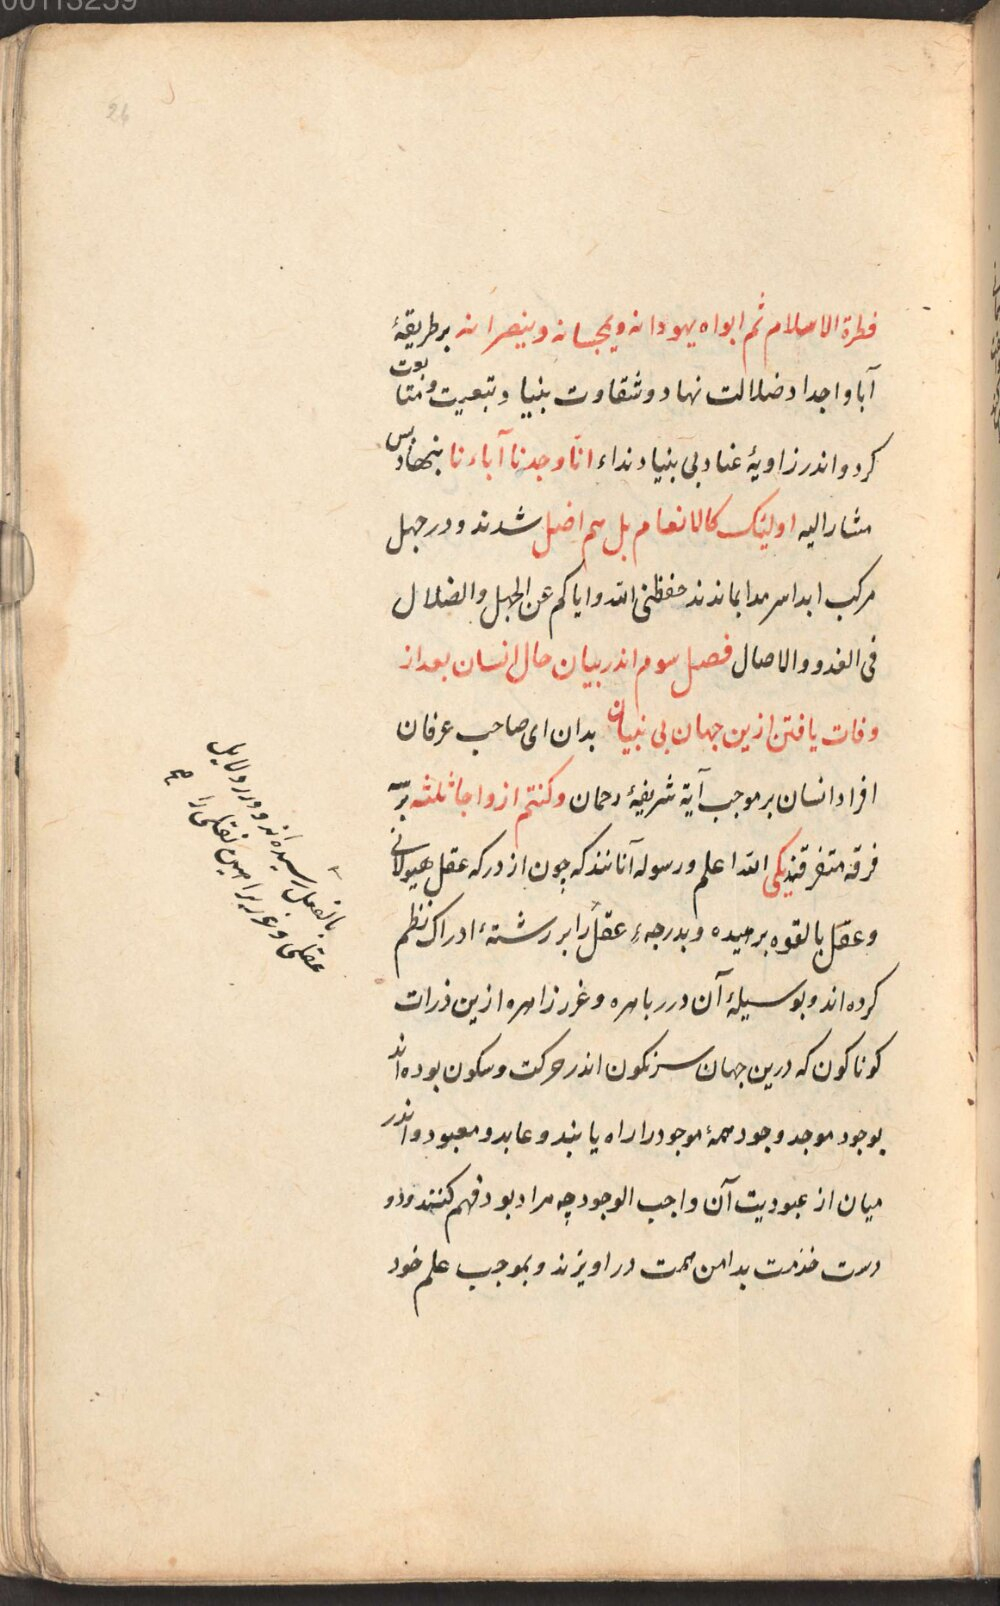 00113259
26
فطرة الاسلام ثم ابواه یهودانه ویمجسانه وینصرانه بر طریقهٔ
آبا واجداد ضلالت نهاد وشقاوت بنیاد وتبعیت ومتابوت
کرد واندر زاویهٔ عناد بی بنیاد نداء انا وجدنا آباءنا
مشار الیه اولیٔک کالانعام بل هم اضل شدند ودر جهل
مرکب ابدا سرمدا بماندند حفظنی الله وایاکم عن الجهل والضلال
فی الغدو والاصال فصل سوم اندر بیان حال انسان بعد از
وفات یافتن ازین جهان بی بنیان بدان ای صاحب عرفان
افراد انسان بر موجب آیة شریفهٔ رحمان وکنتم ازواجا ثلثه بر سه
فرقه متفرقند یکی الله اعلم ورسوله آنانند که چون از درکه عقل هیولانی
وعقل بالقوه برهیده وبدرجهء عقل را بر رشتهٔ ادراک نظم
کرده اند وبوسیلهٔ آن درر باهره وغرر زاهره ازین ذرات
کوناکون که درین جهان سرنکون اندر حرکت وسکون بوده اند
بوجود موجد وجود همهٔ موجود را راه یابند وعابد ومعبود واندر
میان از عبودیت آن واجب الوجود چه مراد بود فهم کنند ودو
دست خدمت بدامن همت در اویزند وبموجب علم خود
بالفعل رسیده اند ودرر دلایل
عقلی وغرر براهین نقلی را صح